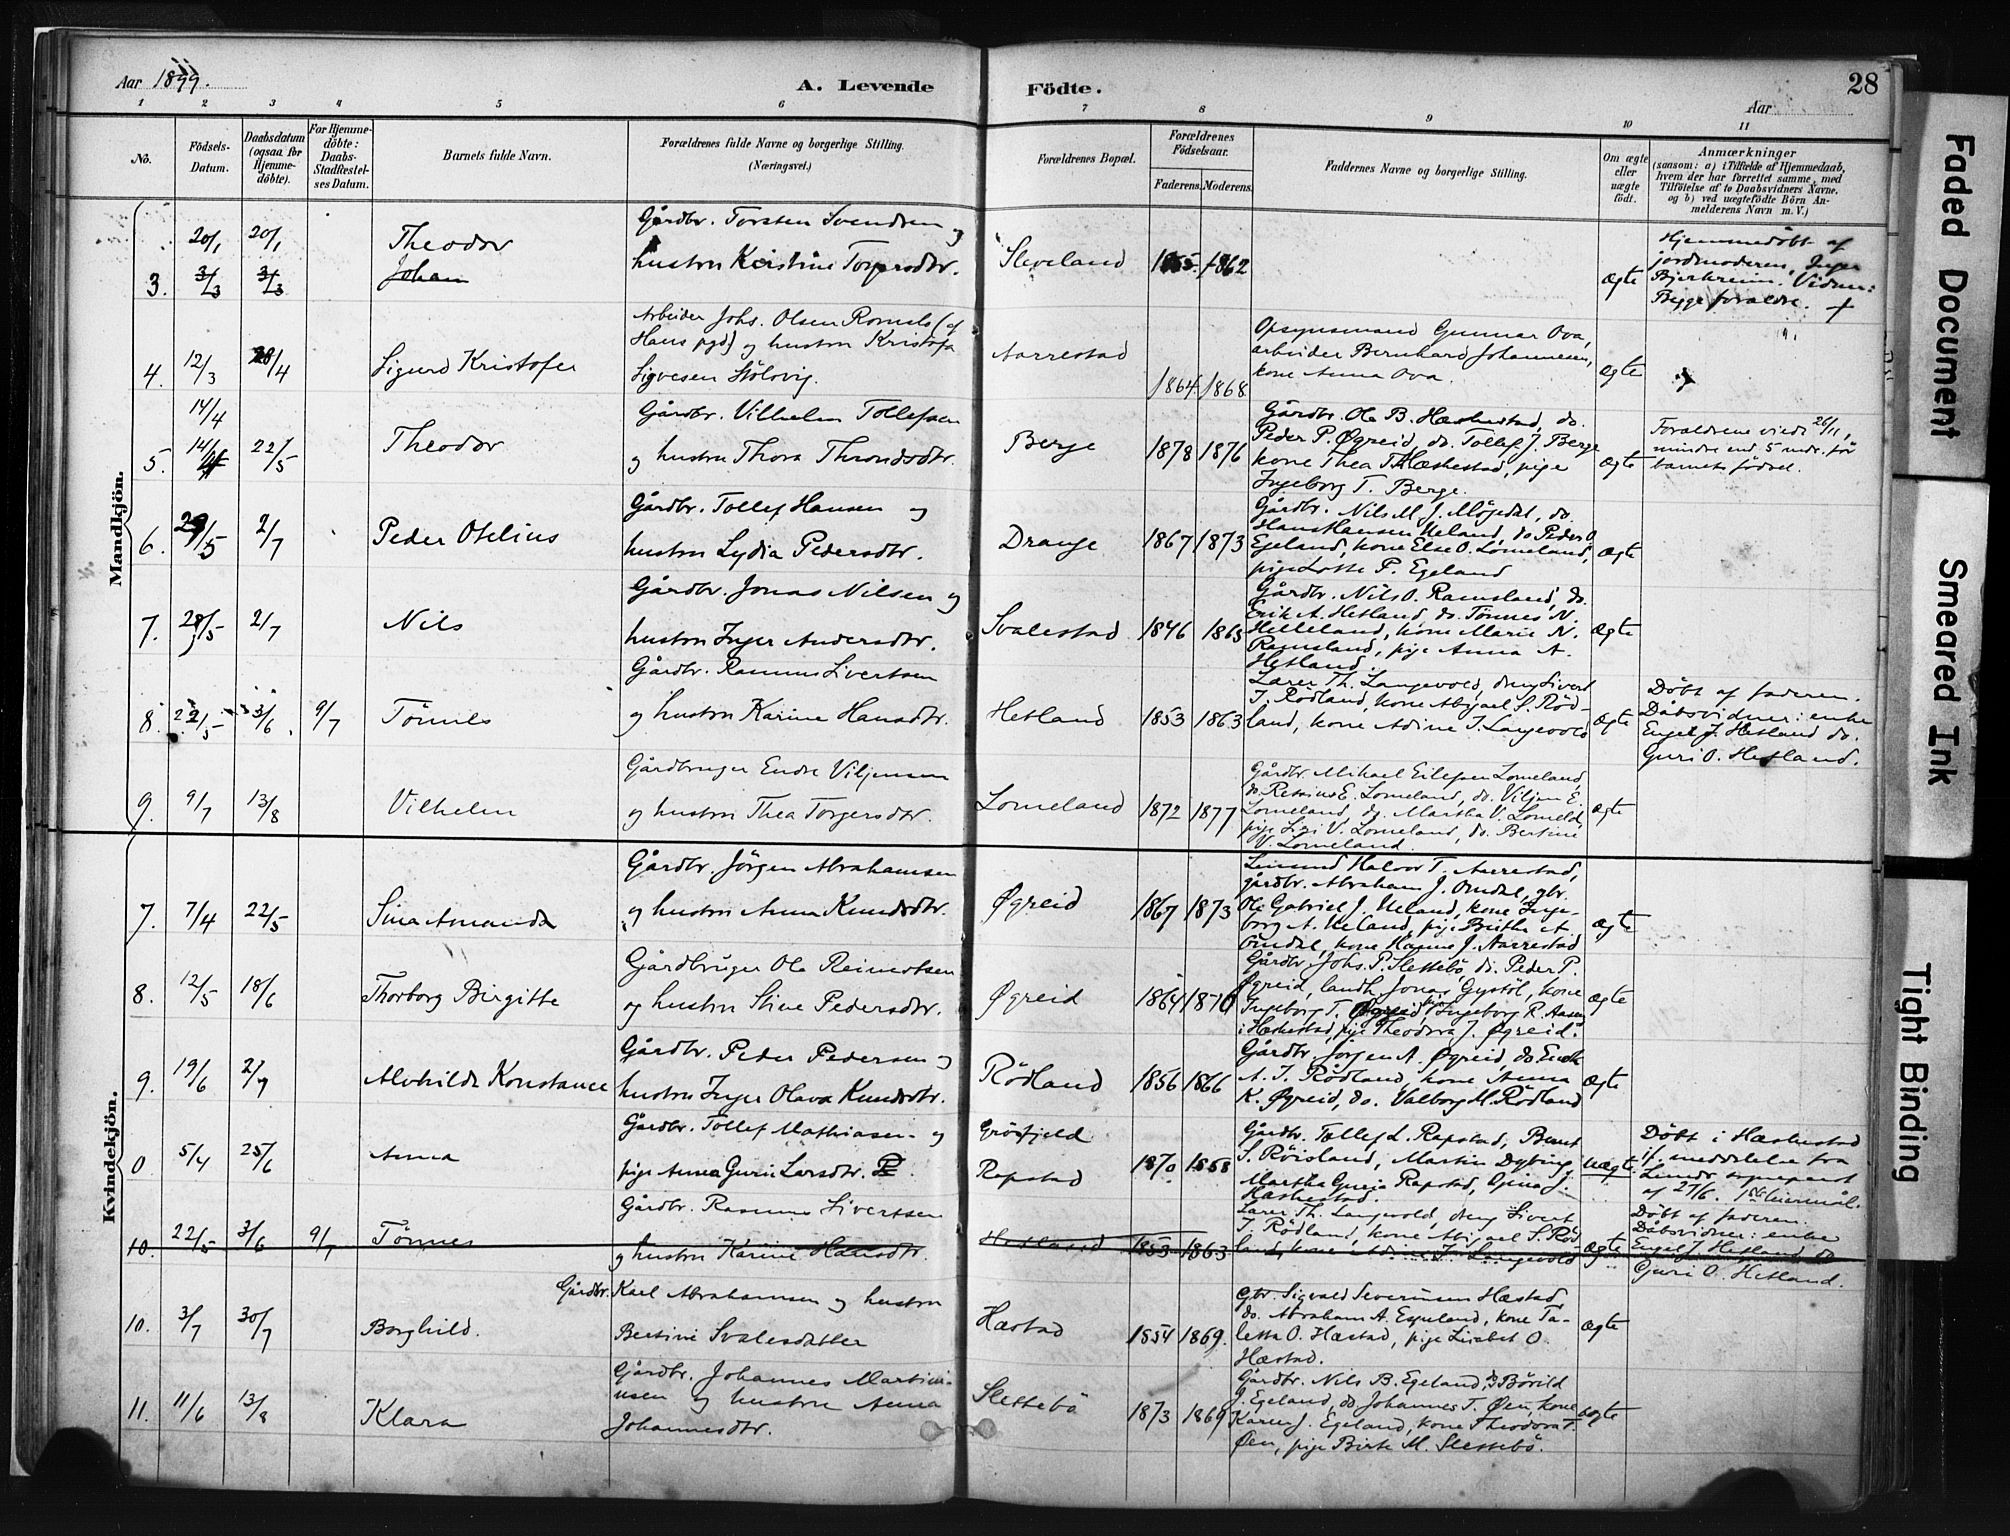 Aar 1899.
A. Levende
Födte.
28
Aar
1 2 3 4 5 6 7 8 9 10 11
No.
Födsels-
Datum.
Daabsdatum
(ogsaa for
Hjemme-
döbte).
For Hjemme-
döbte:
Daabs-
Stadfestel-
ses Datum.
Barnets fulde Navn.
Forældrenes fulde Navne og borgerlige Stilling.
(Næringsvei.)
Forældrenes Bopæl.
Forældrenes
Födselsaar.
Faderens. Moderens.
Faddernes Navne og borgerlige Stilling.
Om ægte
eller
uægte
födt.
Anmærkninger
(saasom: a) i Tilfælde af Hjemmedaab,
hvem der har forrettet samme, med
Tilföielse af to Daabsvidners Navne,
og b) ved uægtefödte Börn An-
melderens Navn m. V.)
Mandkjön.
3. 20/1 20/1
3/3 3/3
Theodor
Johan
Gårdbr. Torsten Svendsen og
hustru Kirstine Torgersdtr.
Sleveland
1855. 1862
ægte
Hjemmedöbt af
jordmoderen, Inger
Bjerkreim. Vidner:
Begge foraldre. +
4. 12/3 28/4
Sigurd Kristofer
Arbeider Johs. Olsen Romslo (af
Haus pgd) og hustru Kristofa
Sigvesen Stölovig.
Aarrestad
1864 1868
Opsynsmand Gunnar Ova,
arbeider Bernhard Johannesen,
kone Anna Ova.
ægte
5. 14/4
14/4 22/5
Theodor
Gårdbr. Vilhelm Tollefsen
og hustru Thora Throndsdtr.
Berge
1878 1876
Gårdbr. Ole B. Hæskestad, do.
Peder P. Øgreid, do. Tollef J. Berge
kone Thea T. Hæskestad, pige
Ingeborg T. Berge.
ægte
Foraldrene viede 26/11,
mindre end 5 mdr. för
barnets födsel.
6. 29/5 2/7
Peder Otelius
Gårdbr. Tollef Hansen og
hustru Lydia Pedersdtr.
Drange
1867 1873
Gårdbr. Nils M. J. Mögedal, do.
Hans Hansen Ueland, do Peder O
Egeland, kone Else O. Lomeland,
pige Lotte P. Egeland
ægte
7. 28/5 2/7
Nils
Gårdbr. Jonas Nilsen og
hustru Inger Andersdtr.
Svalestad
1846 1863
Gårdbr. Nils O. Ramsland, do.
Erik A. Hetland, do. Tönnes N.
Helleland, kone Marie N.
Ramsland, pige Anna A.
Hetland.
ægte
8. 22/5 3/6 9/7
Tönnes
Gårdbr. Rasmus Sivertsen
og hustru Karine Hansdtr.
Hetland
1853 1863
Lærer Th. Langevold, dreng Sivert
J. Rödland, kone Abigael S. Röd-
land, kone Adine J. Langevold
ægte
Döbt af faderen.
Dåbsvidner: enke
Engel J. Hetland do.
Guri O. Hetland.
9. 9/7 13/8
Vilhelm
Gårdbruger Endre Viljensen
og hustru Thea Torgersdtr.
Lomeland
1872 1877
Gårdbr. Mikael Eilefsen Lomeland,
do. E. Lomeland, do. Viljen E.
Lomeland, do. Martha V. Lomeld,
pige Siri V. Lomeland, do. Bertine
V. Lomeland.
ægte
Kvindekjön.
7. 7/4 22/5
Sina Amanda
Gårdbr. Jörgen Abrahamsen
og hustru Anna Knudsdtr.
Øgreid
1867 1873
Lensmd Halvor T. Aarrestad,
gårdbr. Abraham J. Omdal, gbr.
Ole Gabriel J. Ueland, kone Inge-
borg A. Ueland, pige Birthe A.
Omdal, kone Hanne J. Aarrestad
ægte
8. 12/5 18/6
Thorborg Birgitte
Gårdbruger Ole Reinertsen
og hustru Stine Pedersdtr.
Øgreid
1864 1870
Gårdbr. Johs. P. Slettebö, do. Peder P.
Øgreid, landh. Jonas Gystöl, kone
Ingeborg T. Øgreid, pige Ingeborg R. Aasen
i Hæskestad, pige Theodora J. Øgreid.
ægte
9. 19/6 2/7
Alvhilde Konstance
Gårdbr. Peder Pedersen og
hustru Inger Olava Knudsdtr.
Rödland
1856 1866
Gårdbr. Jörgen A. Øgreid, do Enok
A. J. Rödland, kone Anna
K. Øgreid, do. Valborg M. Rödland
ægte
0. 5/4 25/6
Anna
Gårdbr. Tollef Mathiasen og
pige Anna Guri Larsdtr.
Grösfjeld
Rapstad
1870 1858
Gårdbr. Tollef L. Rapstad, Bernt
S. Röisland, Martin Dybing,
Martha Guria Rapstad, Gina J.
Hæskestad.
uægte
Döbt i Hæskestad
if. meddelelse fra
Lunds sogneprest
af 27/6. 1ste leiermål.
10. 22/5 3/6 9/7
Tönnes
Gårdbr. Rasmus Sivertsen
og hustru Karine Hansdtr.
Hetland
1853 1863
Lærer Th. Langevold, dreng Sivert
J. Rödland, kone Abigael S. Röd-
land, kone Adine J. Langevold
ægte
Döbt af faderen.
Dåbsvidner: enke
Engel J. Hetland do
Guri O. Hetland.
10. 3/7 30/7
Borghild.
Gårdbr. Karl Abrahamsen og hustru
Bertine Svalesdatter
Hæstad
1854 1869.
Gbr. Sigvald Severinsen Hæstad,
do. Abraham A. Egeland, kone Ta-
letta O. Hæstad, pige Lisabet O.
Hæstad.
ægte
11. 11/6 13/8
Klara
Gårdbr. Johannes Martin-
usen og hustru Anna
Johannesdtr.
Slettebö
1873 1869
Gårdbr. Nils B. Egeland, do Börild
J. Egeland, do Johannes T. Øen, kone
Karen J. Egeland, kone Theodora T.
Øen, pige Birte M. Slettebö.
ægte
Faded Document
Smeared Ink
Tight Binding